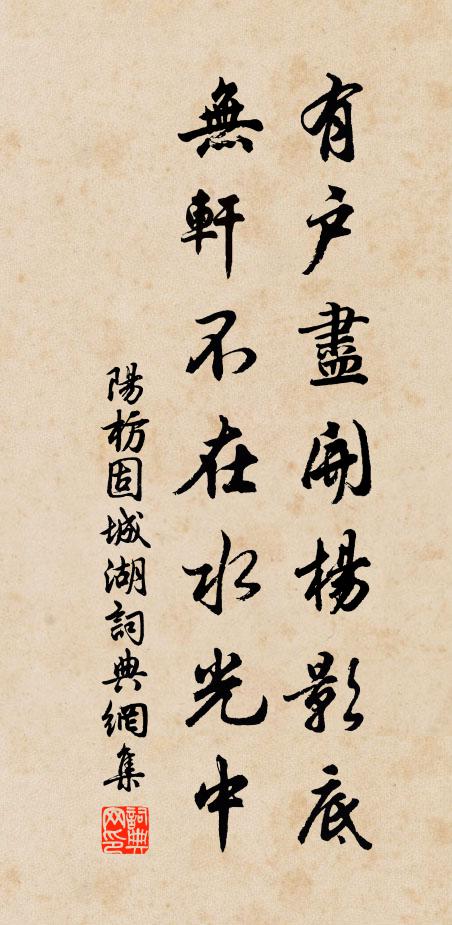 有户盡開楊影底
無軒不在水光中
陽枋固城湖詞典網集
詞典網印